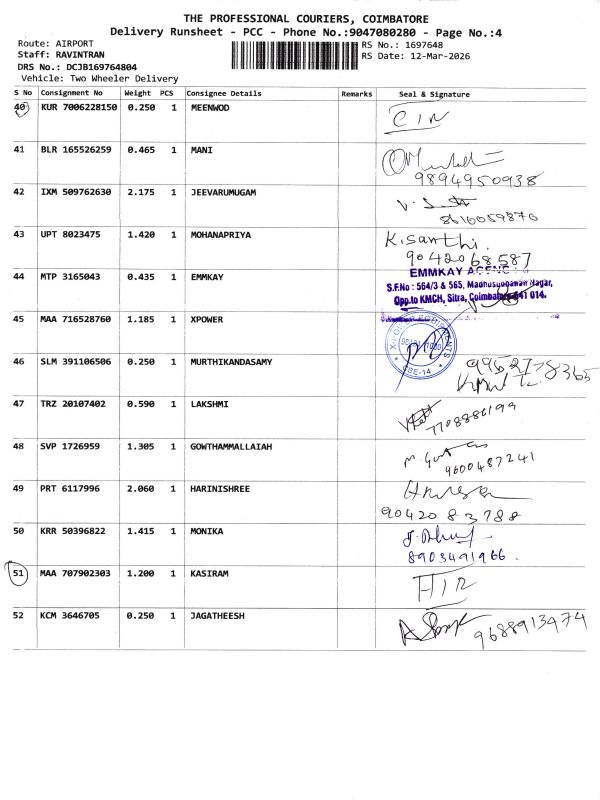 THE PROFESSIONAL COURIERS, COIMBATORE
Delivery Runsheet - PCC - Phone No.:9047080280 - Page No.:4
Route: AIRPORT
RS No.: 1697648
Staff: RAVINTRAN
RS Date: 12-Mar-2026
DRS No.: DCJB169764804
Vehicle: Two Wheeler Delivery
S No Consignment No Weight PCS Consignee Details Remarks Seal & Signature
40 KUR 7006228150 0.250 1 MEENWOD
41 BLR 165526259 0.465 1 MANI
9894950938
42 IXM 509762630 2.175 1 JEEVARUMUGAM
8610059870
43 UPT 8023475 1.420 1 MOHANAPRIYA K.santhi.
9042068587
44 MTP 3165043 0.435 1 EMMKAY
EMMKAY
S.F.No : 564/3 & 565, Madhusudanan Nagar,
Opp.to KMCH, Sitra, Coimbatore-641 014.
45 MAA 716528760 1.185 1 XPOWER
CBE-14
46 SLM 391106506 0.250 1 MURTHIKANDASAMY
47 TRZ 20107402 0.590 1 LAKSHMI
7708886199
48 SVP 1726959 1.305 1 GOWTHAMMALLAIAH
9600487241
49 PRT 6117996 2.060 1 HARINISHREE
9042083788
50 KRR 50396822 1.415 1 MONIKA
8903491966.
51 MAA 707902303 1.200 1 KASIRAM
52 KCM 3646705 0.250 1 JAGATHEESH
9688913474